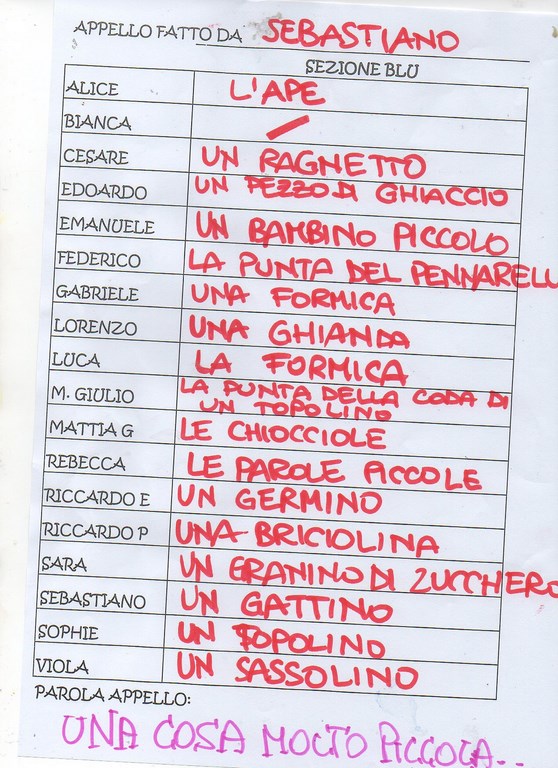 APPELLO FATTO DA SEBASTIANO
SEZIONE BLU
ALICE L'APE
BIANCA /
CESARE UN RAGNETTO
EDOARDO UN PEZZO DI GHIACCIO
EMANUELE UN BAMBINO PICCOLO
FEDERICO LA PUNTA DEL PENNARELLO
GABRIELE UNA FORMICA
LORENZO UNA GHIANDA
LUCA LA FORMICA
M. GIULIO LA PUNTA DELLA CODA DI
UN TOPOLINO
MATTIA G LE CHIOCCIOLE
REBECCA LE PAROLE PICCOLE
RICCARDO E UN GERMINO
RICCARDO P UNA BRICIOLINA
SARA UN GRANINO DI ZUCCHERO
SEBASTIANO UN GATTINO
SOPHIE UN TOPOLINO
VIOLA UN SASSOLINO
PAROLA APPELLO:
UNA COSA MOLTO PICCOLA..